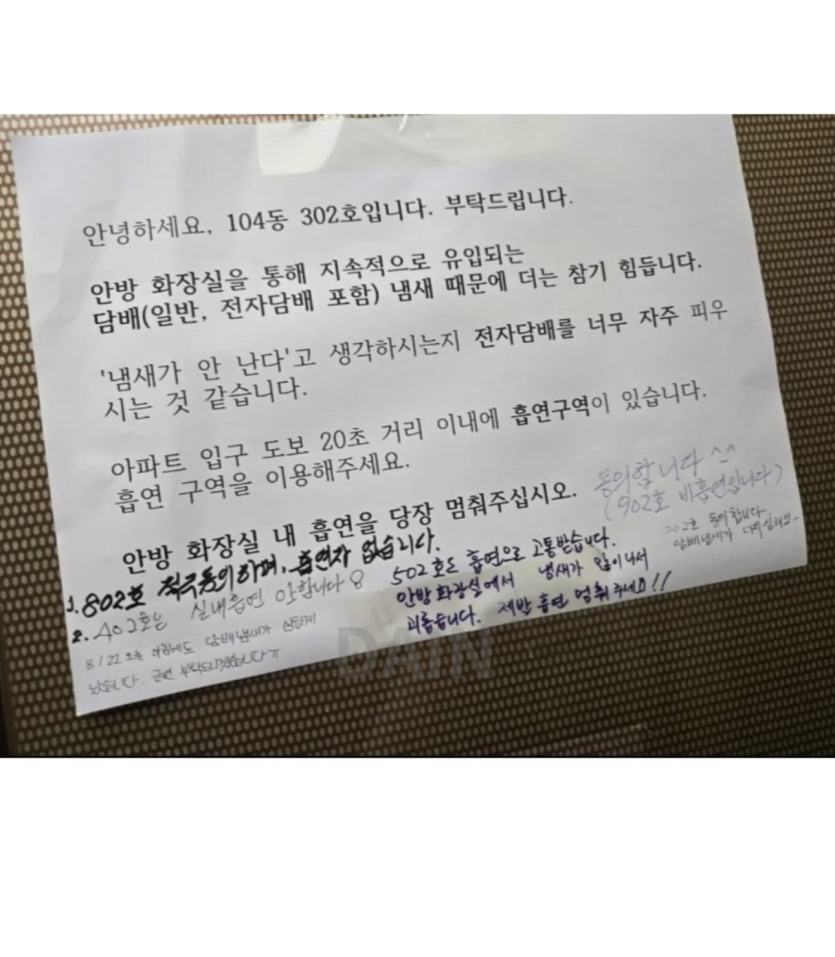 안녕하세요, 104동 302호입니다. 부탁드립니다.
안방 화장실을 통해 지속적으로 유입되는
담배(일반, 전자담배 포함) 냄새 때문에 더는 참기 힘듭니다.
'냄새가 안 난다'고 생각하시는지 전자담배를 너무 자주 피우
시는 것 같습니다.
아파트 입구 도보 20초 거리 이내에 흡연구역이 있습니다.
흡연 구역을 이용해주세요.
안방 화장실 내 흡연을 당장 멈춰주십시오.
동의합니다 ^^
(902호 비흡연입니다)
202호 동의합니다.
담배냄새가
1. 802호 적극동의하며, 흡연자 없습니다.
2. 402호는 실내흡연 안합니다
8/22 오늘 아침에도 담배냄새가
났습니다. 금연 부탁드리겠습니다 ㅠ
502호도 흡연으로 고통받습니다.
안방 화장실에서 냄새가 많이 나서
괴롭습니다. 제발 흡연 멈춰 주세요!!
DAIN